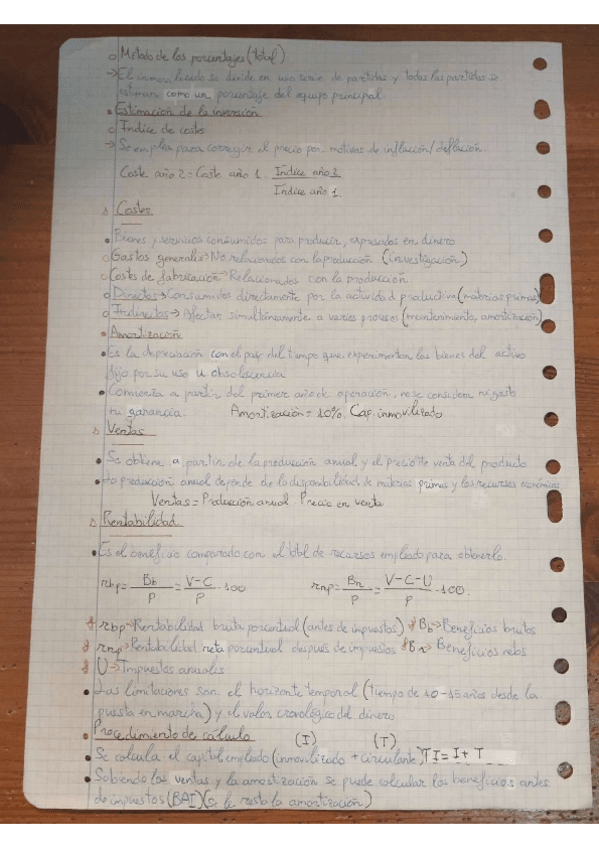 o Método de los porcentajes (total)
→ El inmovilizado se divide en una serie de partidas y todas las partidas se
estiman como un porcentaje del equipo principal
• Estimación de la inversión
o Índice de costes
→ Se emplea para corregir el precio por motivos de inflación/deflación.
Coste año 2 = Coste año 1 · Índice año 2
Índice año 1
Costes
• Bienes y servicios consumidos para producir, expresados en dinero
o Gastos generales → No relacionados con la producción (investigación)
o Costes de fabricación → Relacionados con la producción
o Directos → Consumidos directamente por la actividad productiva (materias primas)
o Indirectos → Afectan simultáneamente a varios procesos (mantenimiento, amortización)
• Amortización
• Es la depreciación con el paso del tiempo que experimentan los bienes del activo
fijo por su uso u obsolescencia
• Comienza a partir del primer año de operación, no se considera ni gasto
ni ganancia. Amortización = 10%. Cap. inmovilizado
Ventas
• Se obtiene a partir de la producción anual y el precio de venta del producto
• La producción anual depende de la disponibilidad de materias primas y los recursos económicos
Ventas = Producción anual · Precio en venta
Rentabilidad
• Es el beneficio comparado con el total de recursos empleado para obtenerlo.
rbp = Bb / P = V-C / P · 100 rnp = Bn / P = V-C-U / P · 100.
rbp → Rentabilidad bruta porcentual (antes de impuestos) Bb → Beneficios brutos
rnp → Rentabilidad neta porcentual después de impuestos Bn → Beneficios netos
U → Impuestos anuales
• Las limitaciones son el horizonte temporal (tiempo de 10-15 años desde la
puesta en marcha) y el valor cronológico del dinero
• Procedimiento de cálculo (I) (T)
• Se calcula el capital empleado (inmovilizado + circulante) TI = I + T
• Sabiendo las ventas y la amortización se puede calcular los beneficios antes
de impuestos (BAI) (se le resta la amortización)